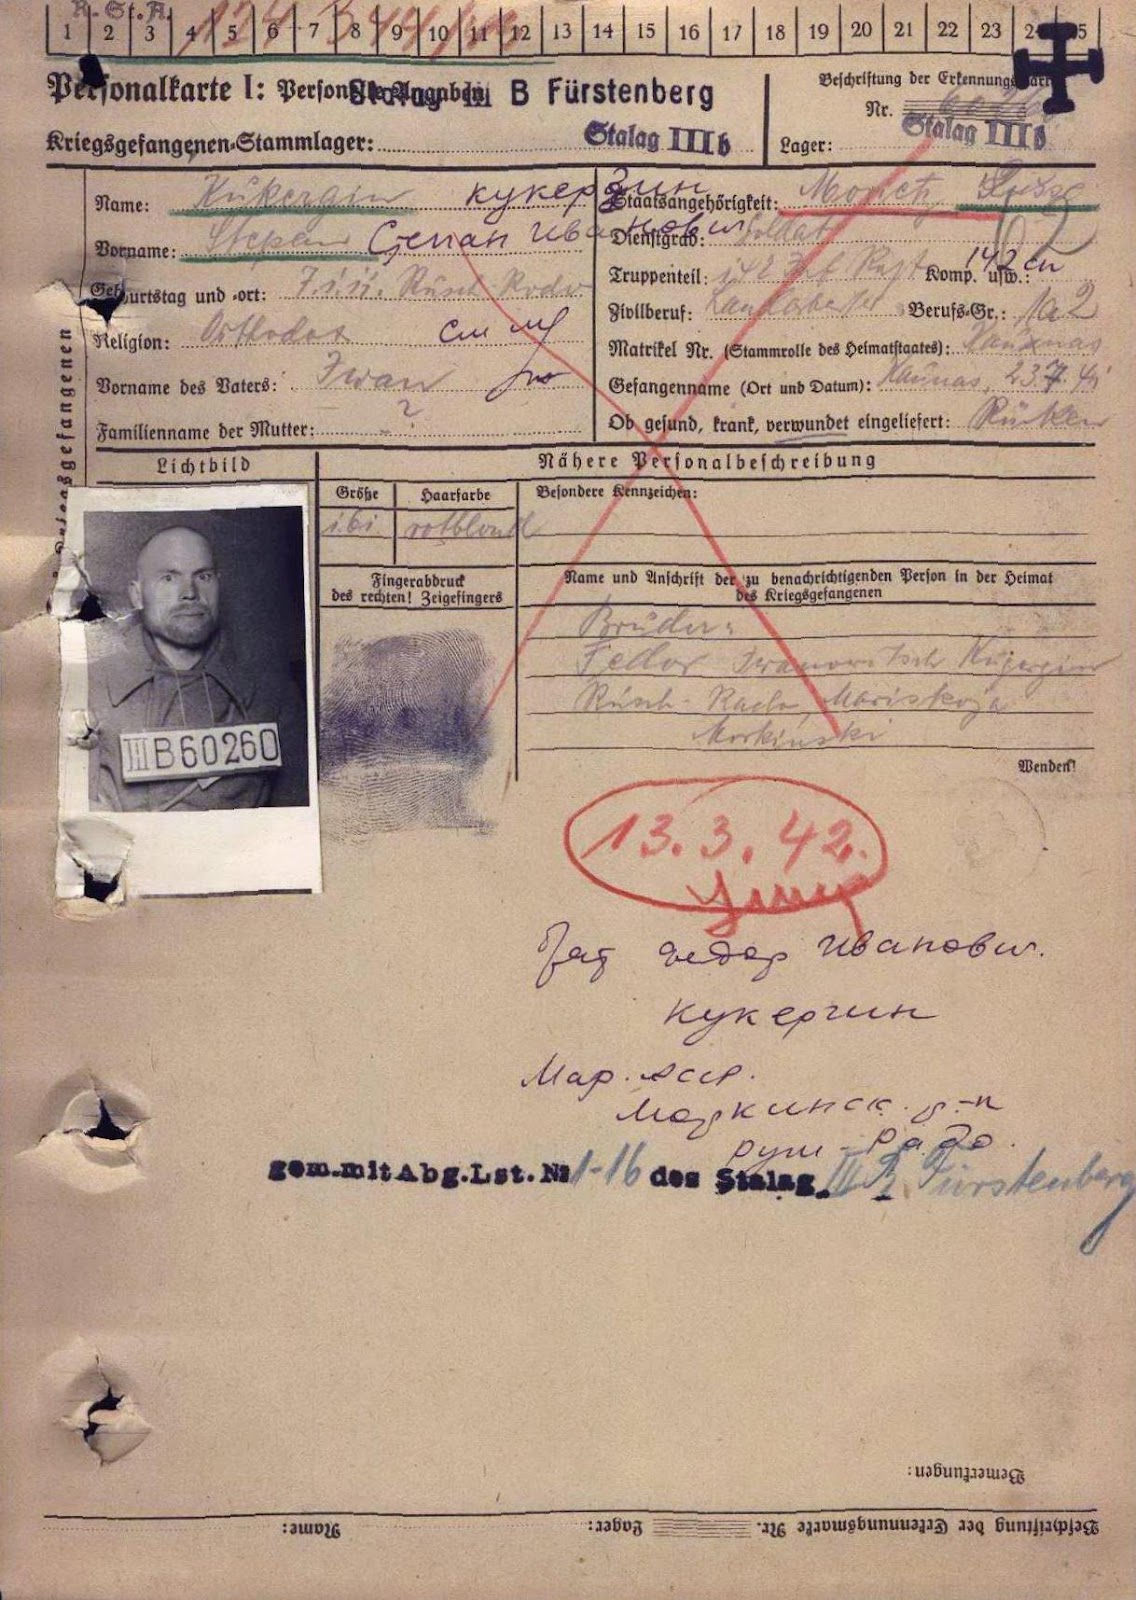 1 2 3 4 5 6 7 8 9 10 11 12 13 14 15 16 17 18 19 20 21 22 23
Personalkarte I: Personelle Angaben
Stalag III B Fürstenberg
Beschriftung der Erkennungsmarke
Nr. 60260
Kriegsgefangenen-Stammlager: Stalag IIIb
Lager: Stalag IIIb
Name: Kukergin Кукергин
Vorname: Stepan Степан Иванович
Geburtstag und -ort:
Religion: Orthodox
Vorname des Vaters: Iwan
Familienname der Mutter: - ?
Staatsangehörigkeit:
Dienstgrad: Soldat
Truppenteil: 142 Inf. Regt. Komp. usw.: 142 сп
Zivilberuf: Landarbeiter Berufs-Gr.: 1a2
Matrikel Nr. (Stammrolle des Heimatstaates): Kaunas
Gefangenname (Ort und Datum): Kaunas, 23.7.41
Ob gesund, krank, verwundet eingeliefert: Rücken
Lichtbild
Nähere Personalbeschreibung
Größe Haarfarbe Besondere Kennzeichen:
1.61. rotblond
Fingerabdruck
des rechten! Zeigefingers
Name und Anschrift der zu benachrichtigenden Person in der Heimat
des Kriegsgefangenen
Bruder:
Fedor Iwanowitsch Kugergin
Rusch-Rado, Mariskaja
Morkinski
Wenden!
III B 60260
13.3.42.
Федор Иванович
Кукергин
Мар. АССР.
Моркинск. р-н
Руш-Радо.
gem. mit Abg. Lst. № 1-16 des Stalag III B Fürstenberg
Bemerkungen:
Beschriftung der Erkennungsmarke Nr. Lager: Name: